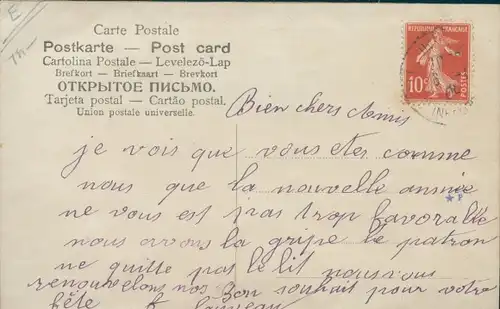 E
Carte Postale
Postkarte — Post card
Cartolina Postale — Levelező-Lap
Brefkort — Briefkaart — Brevkort
ОТКРЫТОЕ ПИСЬМО.
Tarjeta postal — Cartão postal.
Union postale universelle.
REPUBLIQUE FRANÇAISE
10c
POSTES
Bien chers Amis
je vois que vous etes comme
nous que la nouvelle année
ne vous est pas trop favorable
nous avons la gripe le patron
ne quitte pas le lit nous vous
renouvelons nos Bon souhait pour votre
fête